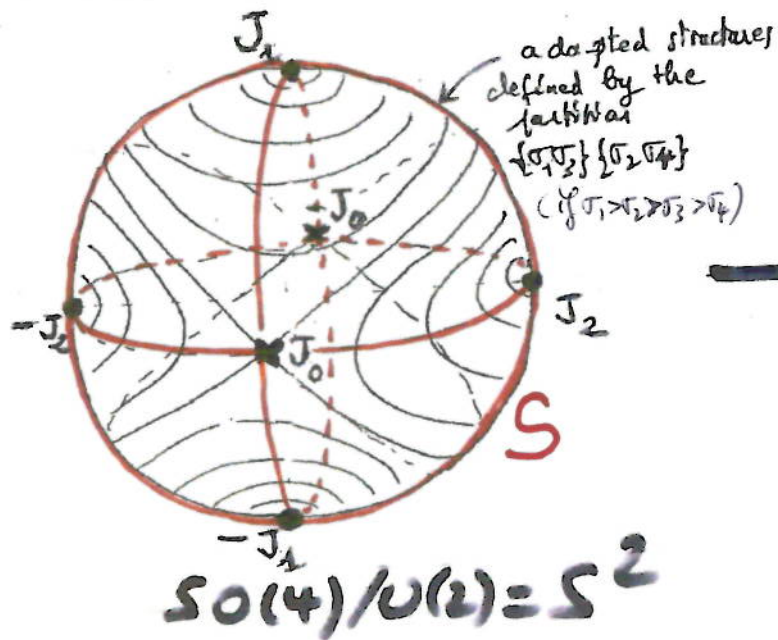 J₁
adapted structures
defined by the
partition
{σ₁σ₃}{σ₂σ₄}
(if σ₁>σ₂>σ₃>σ₄)
-J₀
-J₂
J₀
J₂
S
-J₁
SO(4)/U(2)=S²